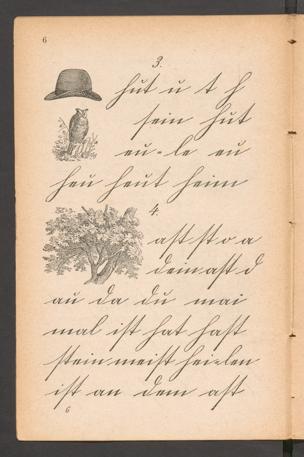 6
3.
hut u t h
sein hut
eu-le eu
heu heut heim
4.
ast st o a
dein ast d
au da du mai
mal ist hat hast
stein meist hei-len
ist an dem ast
6